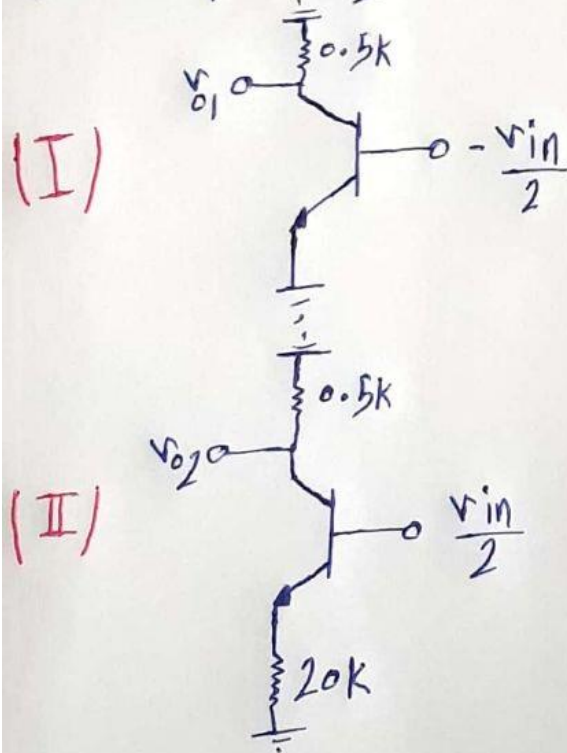 0.5K
vo1
(I)
- vin/2
0.5K
vo2
(II)
vin/2
20K